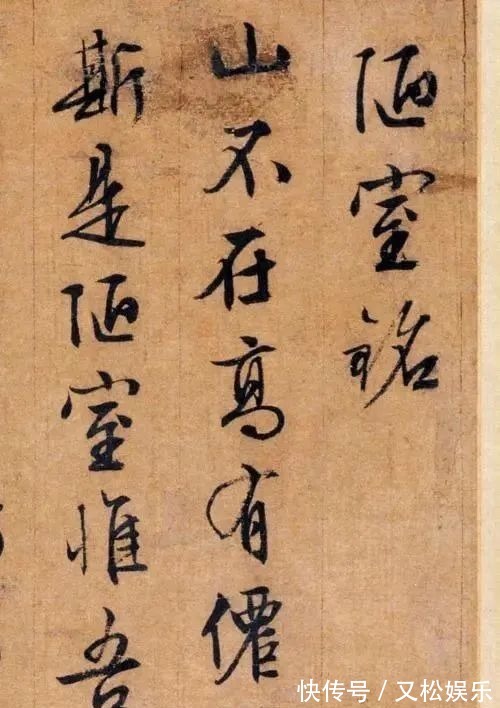 陋室銘
山不在高有僊
斯是陋室惟吾
快传号/又松娱乐